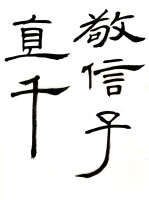 敬信子
直千